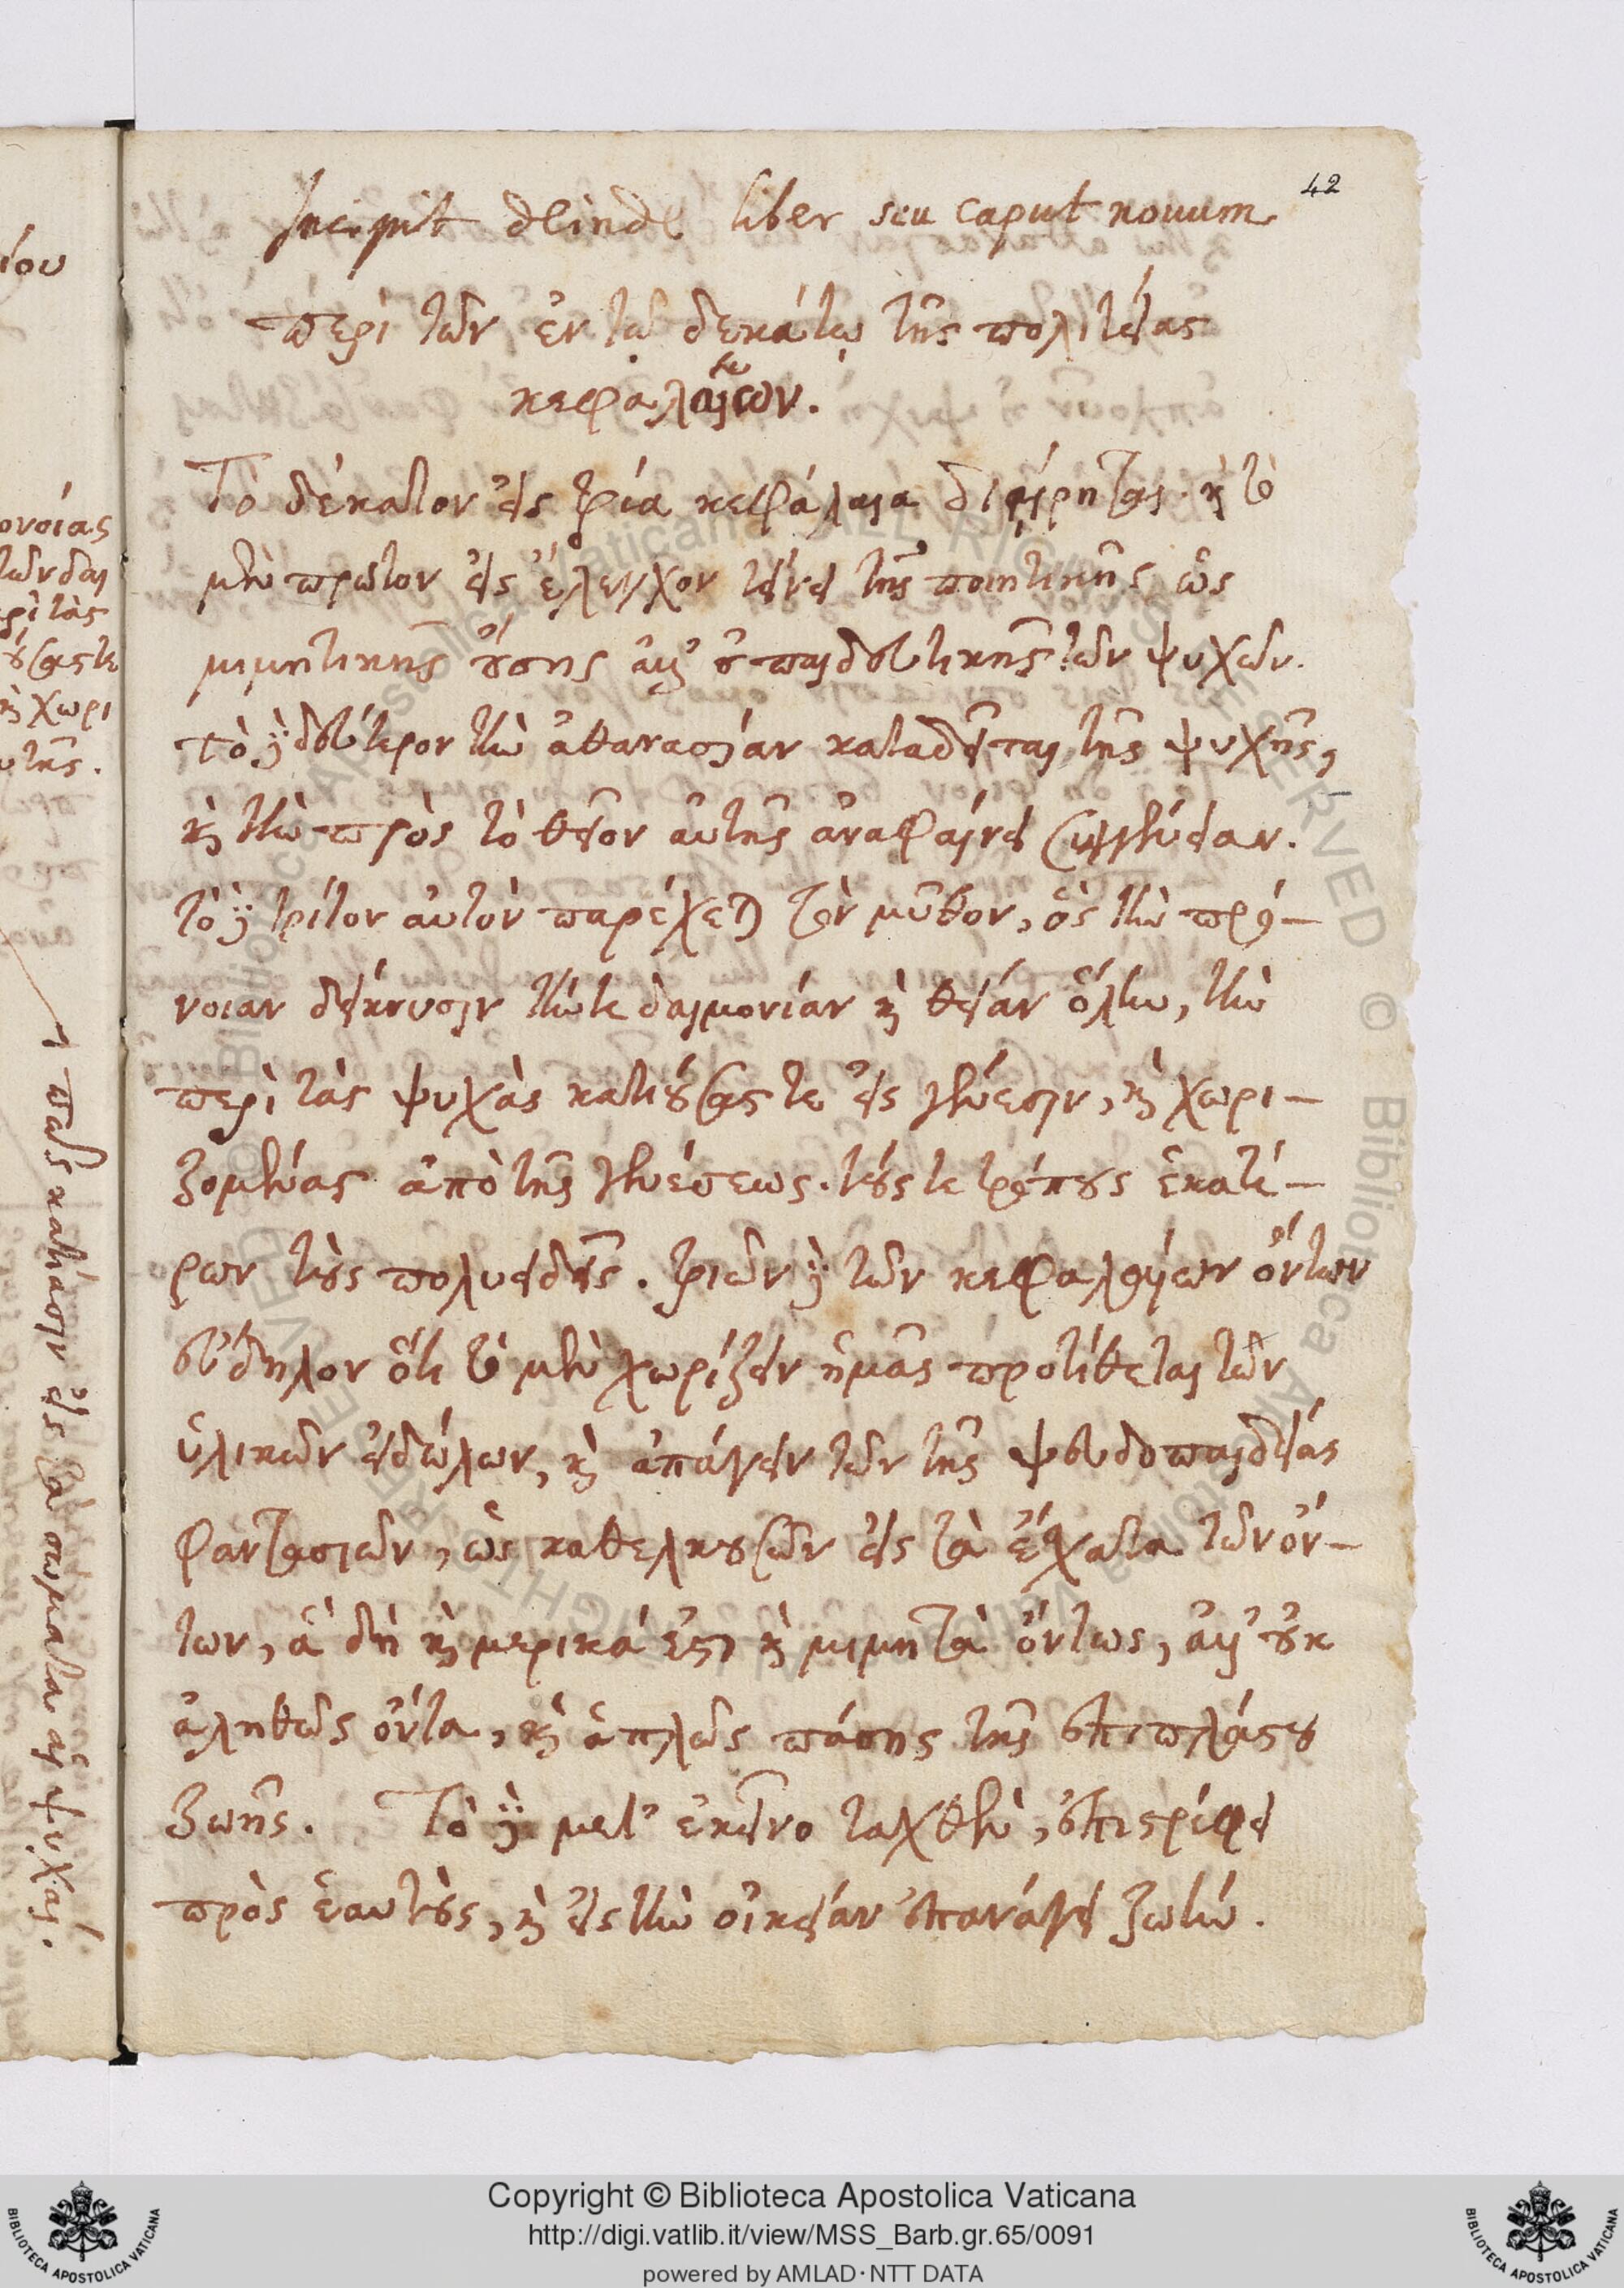 42
Incipit deinde liber seu caput novum
περὶ τῶν ἐν τῷ δεκάτῳ τῆς πολιτείας
κεφαλαίων.
Τὸ δέκατον εἰς τρία κεφάλαια διῄρηται· καὶ τὸ
μὲν πρῶτον εἰς ἔλεγχον τείνει τῆς ποιητικῆς ὡς
μιμητικῆς οὔσης ἀλλ' οὐ παιδευτικῆς τῶν ψυχῶν.
τὸ δὲ δεύτερον τὴν ἀθανασίαν κατα τῆς ψυχῆς,
καὶ τὴν πρὸς τὸ θεῖον αὐτῆς ἀναφαίνει συγγένειαν.
τὸ δὲ τρίτον αὐτὸν παρέχεται τὸν μῦθον, ὃς τὴν πρό–
νοιαν δείκνυσιν τήν τε δαιμονίαν καὶ θείαν ὅλην, τὴν
περὶ τὰς ψυχὰς κατιούσας τε εἰς γένεσιν, καὶ χωρι–
ζομένας ἀπὸ τῆς γενέσεως. τούς τε τρόπους ἑκατέ–
ρων τοὺς πολυειδεῖς. τριῶν δὲ τῶν κεφαλαίων ὄντων
εὔδηλον ὅτι τὸ μὲν χωρίζειν ἡμᾶς προτίθεται τῶν
ὑλικῶν εἰδώλων, καὶ ἀπάγειν τῶν τῆς ψευδοπαιδείας
φαντασιῶν, ὡς καθελκουσῶν εἰς τὰ ἔσχατα τῶν ὄν–
των, ἃ δὴ καὶ μερικά ἐστι καὶ μιμητὰ ὄντως, ἀλλ' οὐκ
ἀληθῶς ὄντα, καὶ ἁπλῶς πάσης τῆς ἐπιπλάστου
ζωῆς. Τὸ δὲ μετ' ἐκεῖνο ταχθὲν, ἐπιστρέφει
πρὸς ἑαυτοὺς, καὶ εἰς τὴν οἰκείαν ἐπανάγει ζωήν.
ίου
ονοίας
τῶν δαι
ερὶ τὰς
ούσας τε
καὶ χωρι
υτῆς.
πῶς κατίασιν εἰς τὰ σώματα αἱ ψυχαί.
© Biblioteca Apostolica Vaticana ALL RIGHTS RESERVED
Copyright © Biblioteca Apostolica Vaticana
http://digi.vatlib.it/view/MSS_Barb.gr.65/0091
powered by AMLAD·NTT DATA
BIBLIOTECA APOSTOLICA VATICANA
BIBLIOTECA APOSTOLICA VATICANA